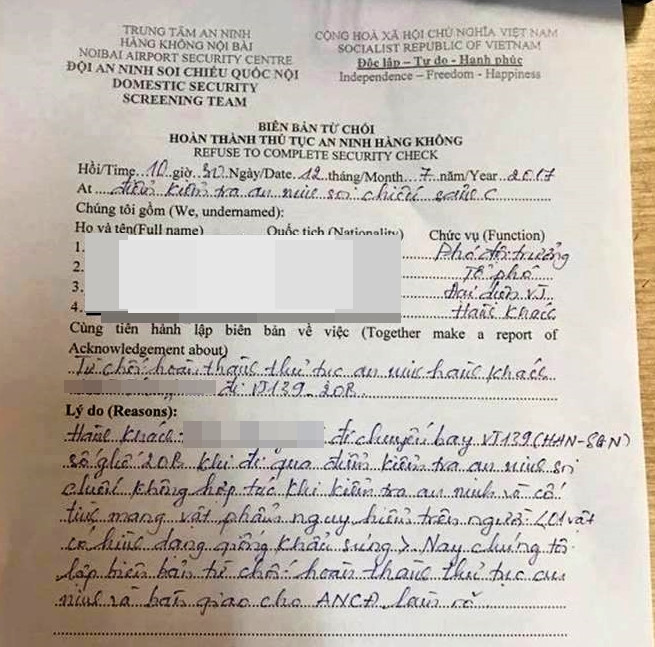 TRUNG TÂM AN NINH
HÀNG KHÔNG NỘI BÀI
NOIBAI AIRPORT SECURITY CENTRE
ĐỘI AN NINH SOI CHIẾU QUỐC NỘI
DOMESTIC SECURITY
SCREENING TEAM
CỘNG HOÀ XÃ HỘI CHỦ NGHĨA VIỆT NAM
SOCIALIST REPUBLIC OF VIETNAM
Độc lập – Tự do - Hạnh phúc
Independence – Freedom - Happiness
BIÊN BẢN TỪ CHỐI
HOÀN THÀNH THỦ TỤC AN NINH HÀNG KHÔNG
REFUSE TO COMPLETE SECURITY CHECK
Hồi/Time 10 giờ 30 Ngày/Date 12 tháng/Month 7 năm/Year 2017
At điểm kiểm tra an ninh soi chiếu sảnh C
Chúng tôi gồm (We, undernamed):
Họ và tên(Full name) Quốc tịch (Nationality) Chức vụ (Function)
1. Phó đội trưởng
2. Tổ phó
3. Đại diện VJ
4. Hành khách
Cùng tiến hành lập biên bản về việc (Together make a report of
Acknowledgement about)
Từ chối hoàn thành thủ tục an ninh hành khách
đi VJ139 - 20B
Lý do (Reasons):
Hành khách: đi chuyến bay VJ139 (HAN-SGN)
số ghế 20B khi đi qua điểm kiểm tra an ninh soi
chiếu không hợp tác khi kiểm tra an ninh và cố
tình mang vật phẩm nguy hiểm trên người (01 vật
có hình dạng giống khẩu súng). Nay chúng tôi
lập biên bản từ chối hoàn thành thủ tục an
ninh và bàn giao cho ANCĐ làm rõ.